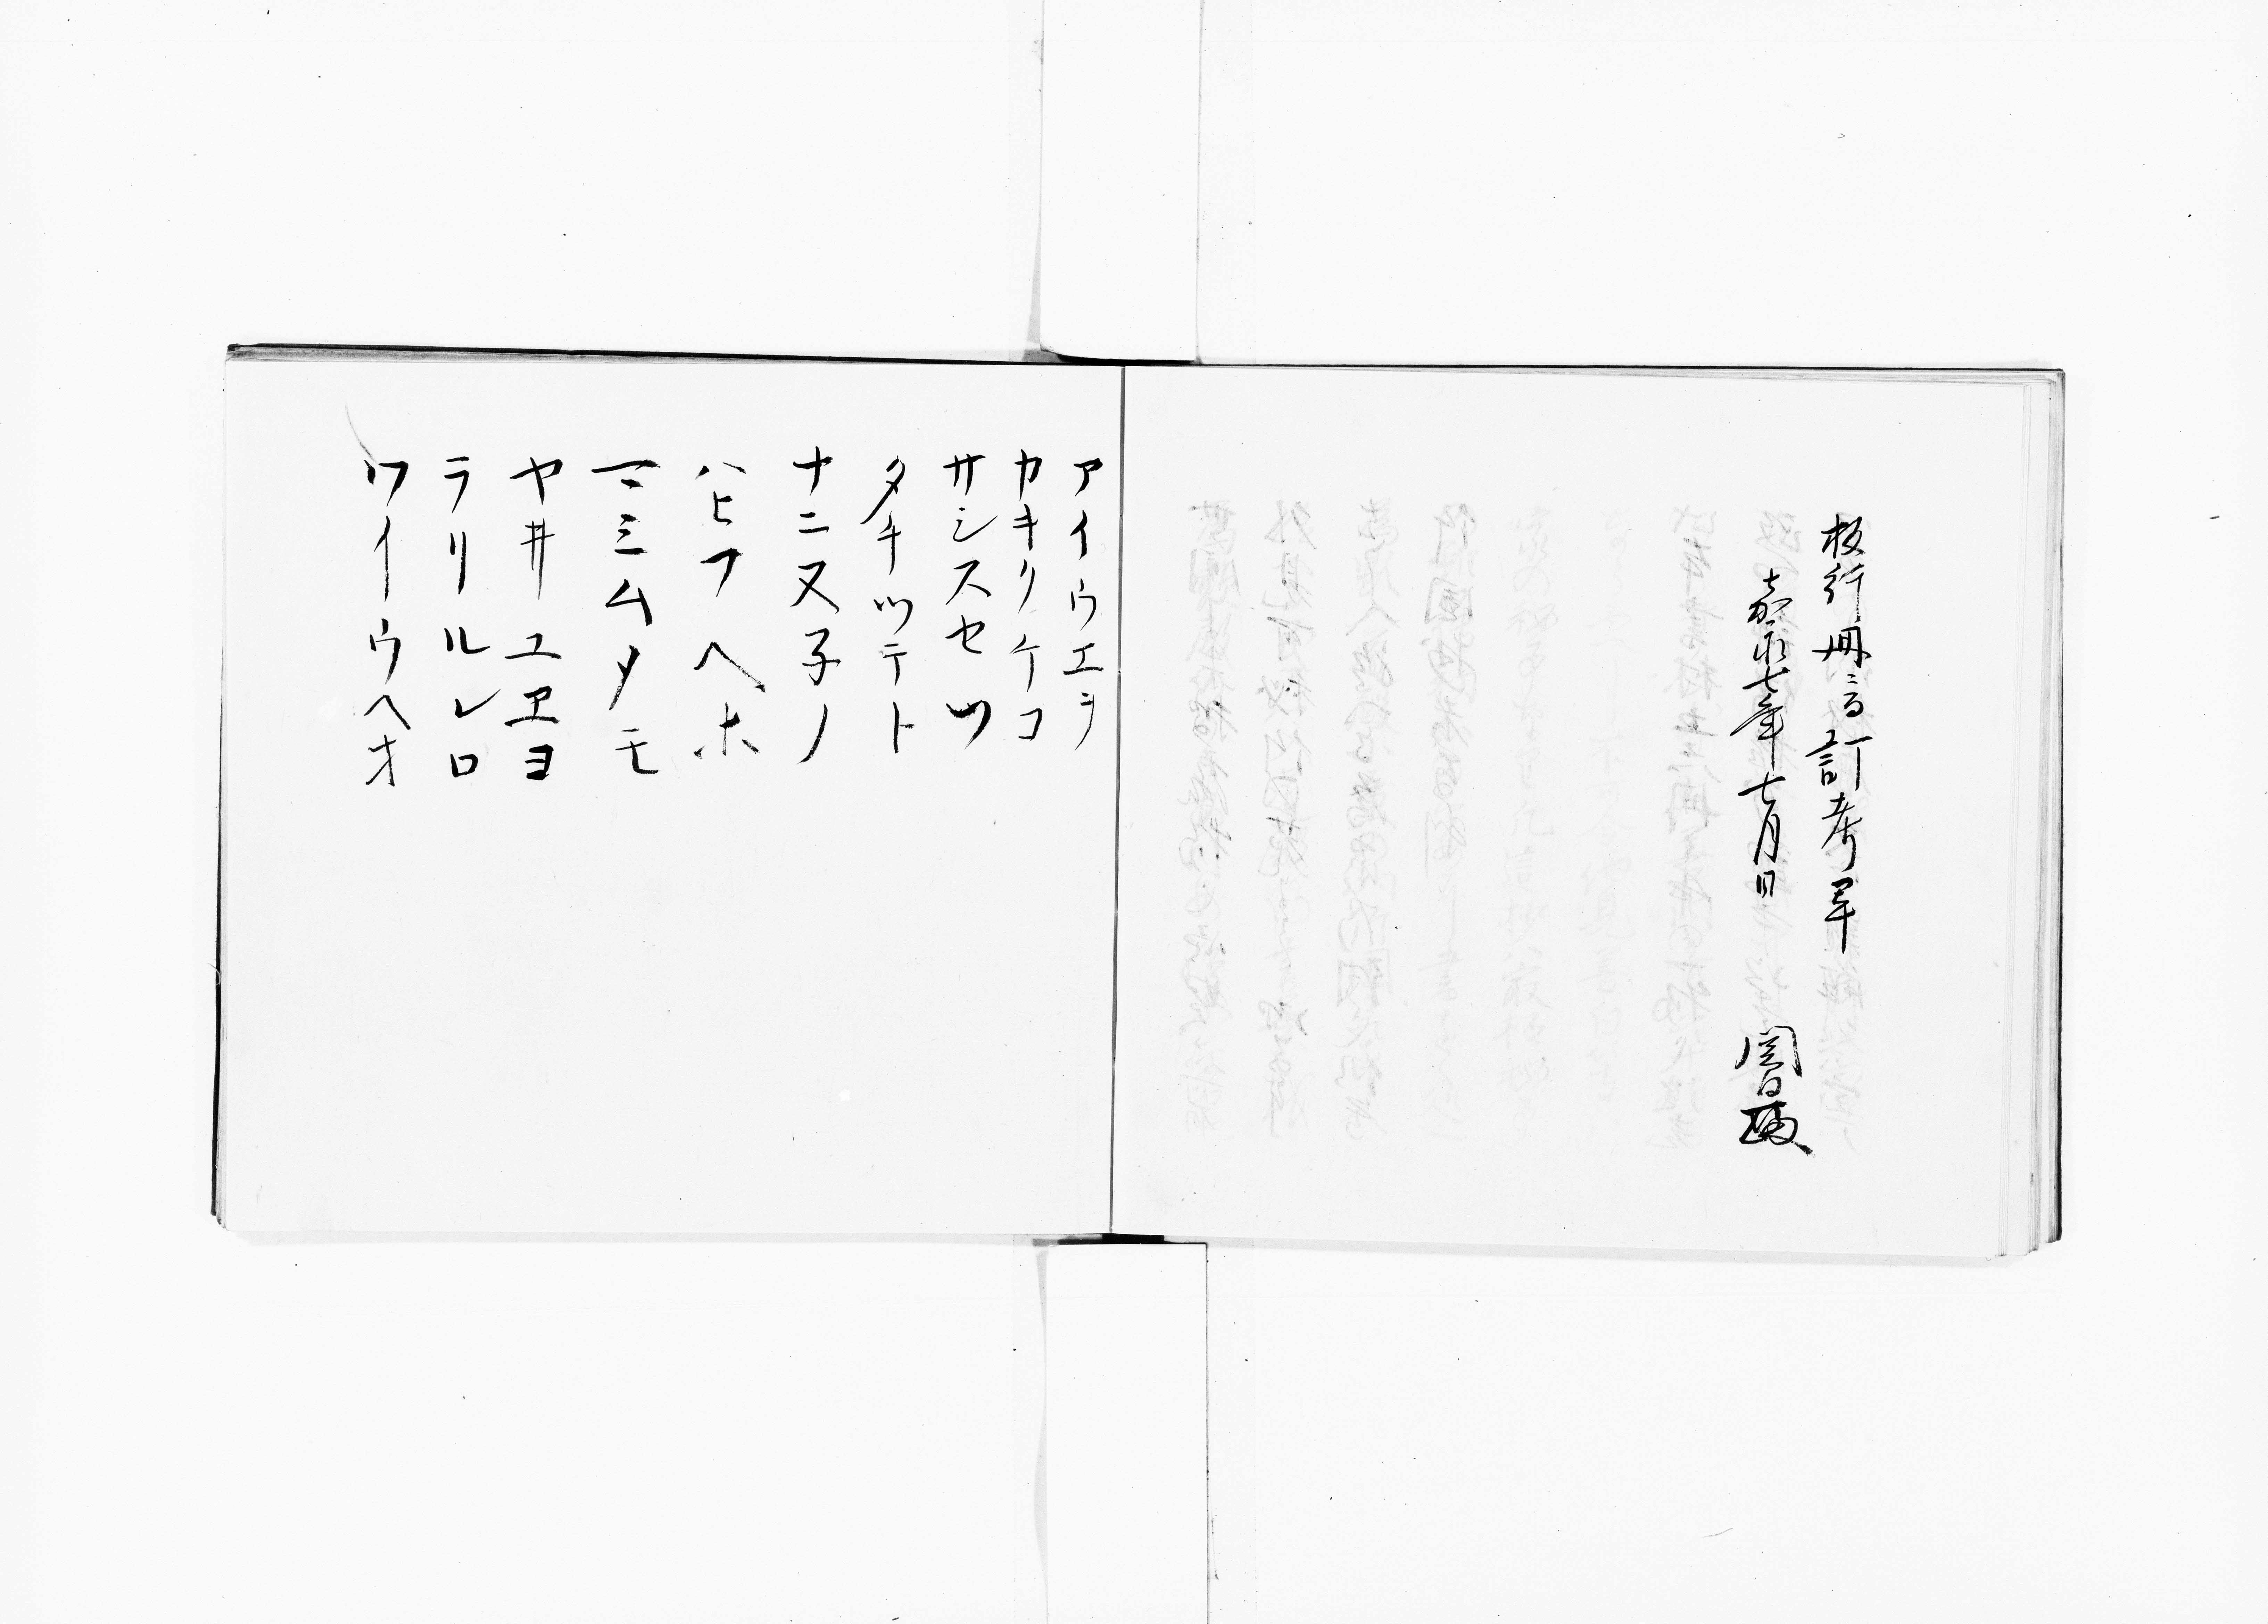 板行冊ニ而訂考畢
嘉永七年七月日
関
アイウエヲ
カキクケコ
サシスセツ
タチツテト
ナニヌ子ノ
ハヒフヘホ
マミムメモ
ヤ井ユヱヨ
ラリルレロ
ワイウヘオ